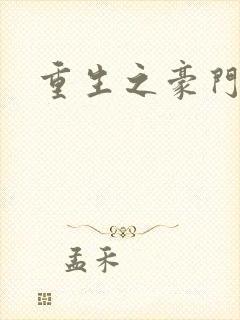 重生之豪門
孟禾